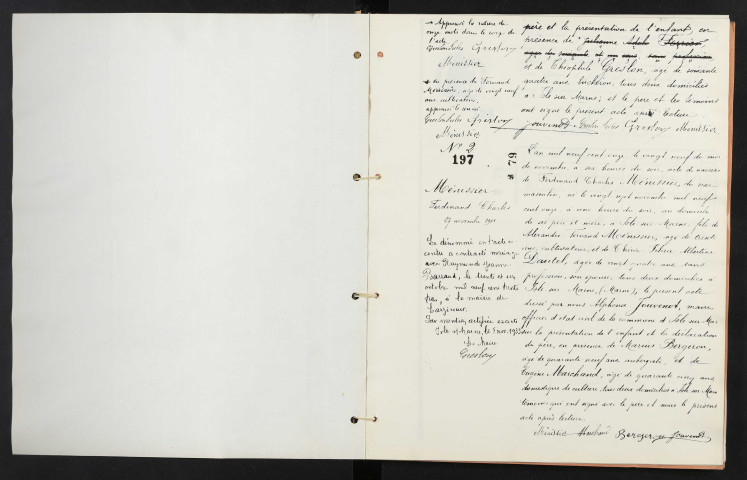 Approuvé la rature de
onze mots dans le corps de
l'acte
Greslon
Menissier
en présence de Fernand
Menissier, âgé de vingt neuf
ans cultivateur,
approuvé le renvoi
Greslon
Menissier
N° 2
197
Ménissier
Ferdinand Charles
27 novembre 1911
Le dénommé en l'acte ci
contre a contracté mariage
avec Raymonde Jeanne
Barraud, le trente et un
octobre mil neuf cent trente
, à la mairie de
Pour mention certifiée exacte
Isle s/ Marne, le 5 nov. 193
Le Maire
Greslon
père et la présentation de l'enfant, en
présence de
et de Théophile Greslon, âgé de soixante
quatre ans, bûcheron, tous deux domiciliés
à Isle sur Marne; et le père et les témoins
ont signé le présent acte après lecture
Jouvenot Greslon Menissier
79
L'an mil neuf cent onze le vingt neuf du mois
de novembre, à heures du soir, acte de naissance
de Ferdinand Charles Ménissier, du sexe
masculin, né le vingt sept novembre mil neuf
cent onze, à une heure du soir, au domicile
de ses père et mère, à Isle sur Marne, fils de
Alexandre Fernand Ménissier, âgé de trente
ans, cultivateur, et de Albertine
Dautel, âgée de vingt quatre ans, sans
profession, son épouse, tous deux domiciliés à
Isle sur Marne, (Marne), le présent acte
dressé par nous Alphonse Jouvenot, maire,
officier d'état civil de la commune d'Isle sur Marne
sur la présentation de l'enfant et la déclaration
du père, en présence de Marius Bergeron,
âgé de quarante neuf ans aubergiste, et de
Eugène Marchand, âgé de quarante cinq ans
domestique de culture, tous deux domiciliés à Isle sur Marne
témoins qui ont signé avec le père et nous le présent
acte après lecture.
Ménissier Marchand Bergeron Jouvenot